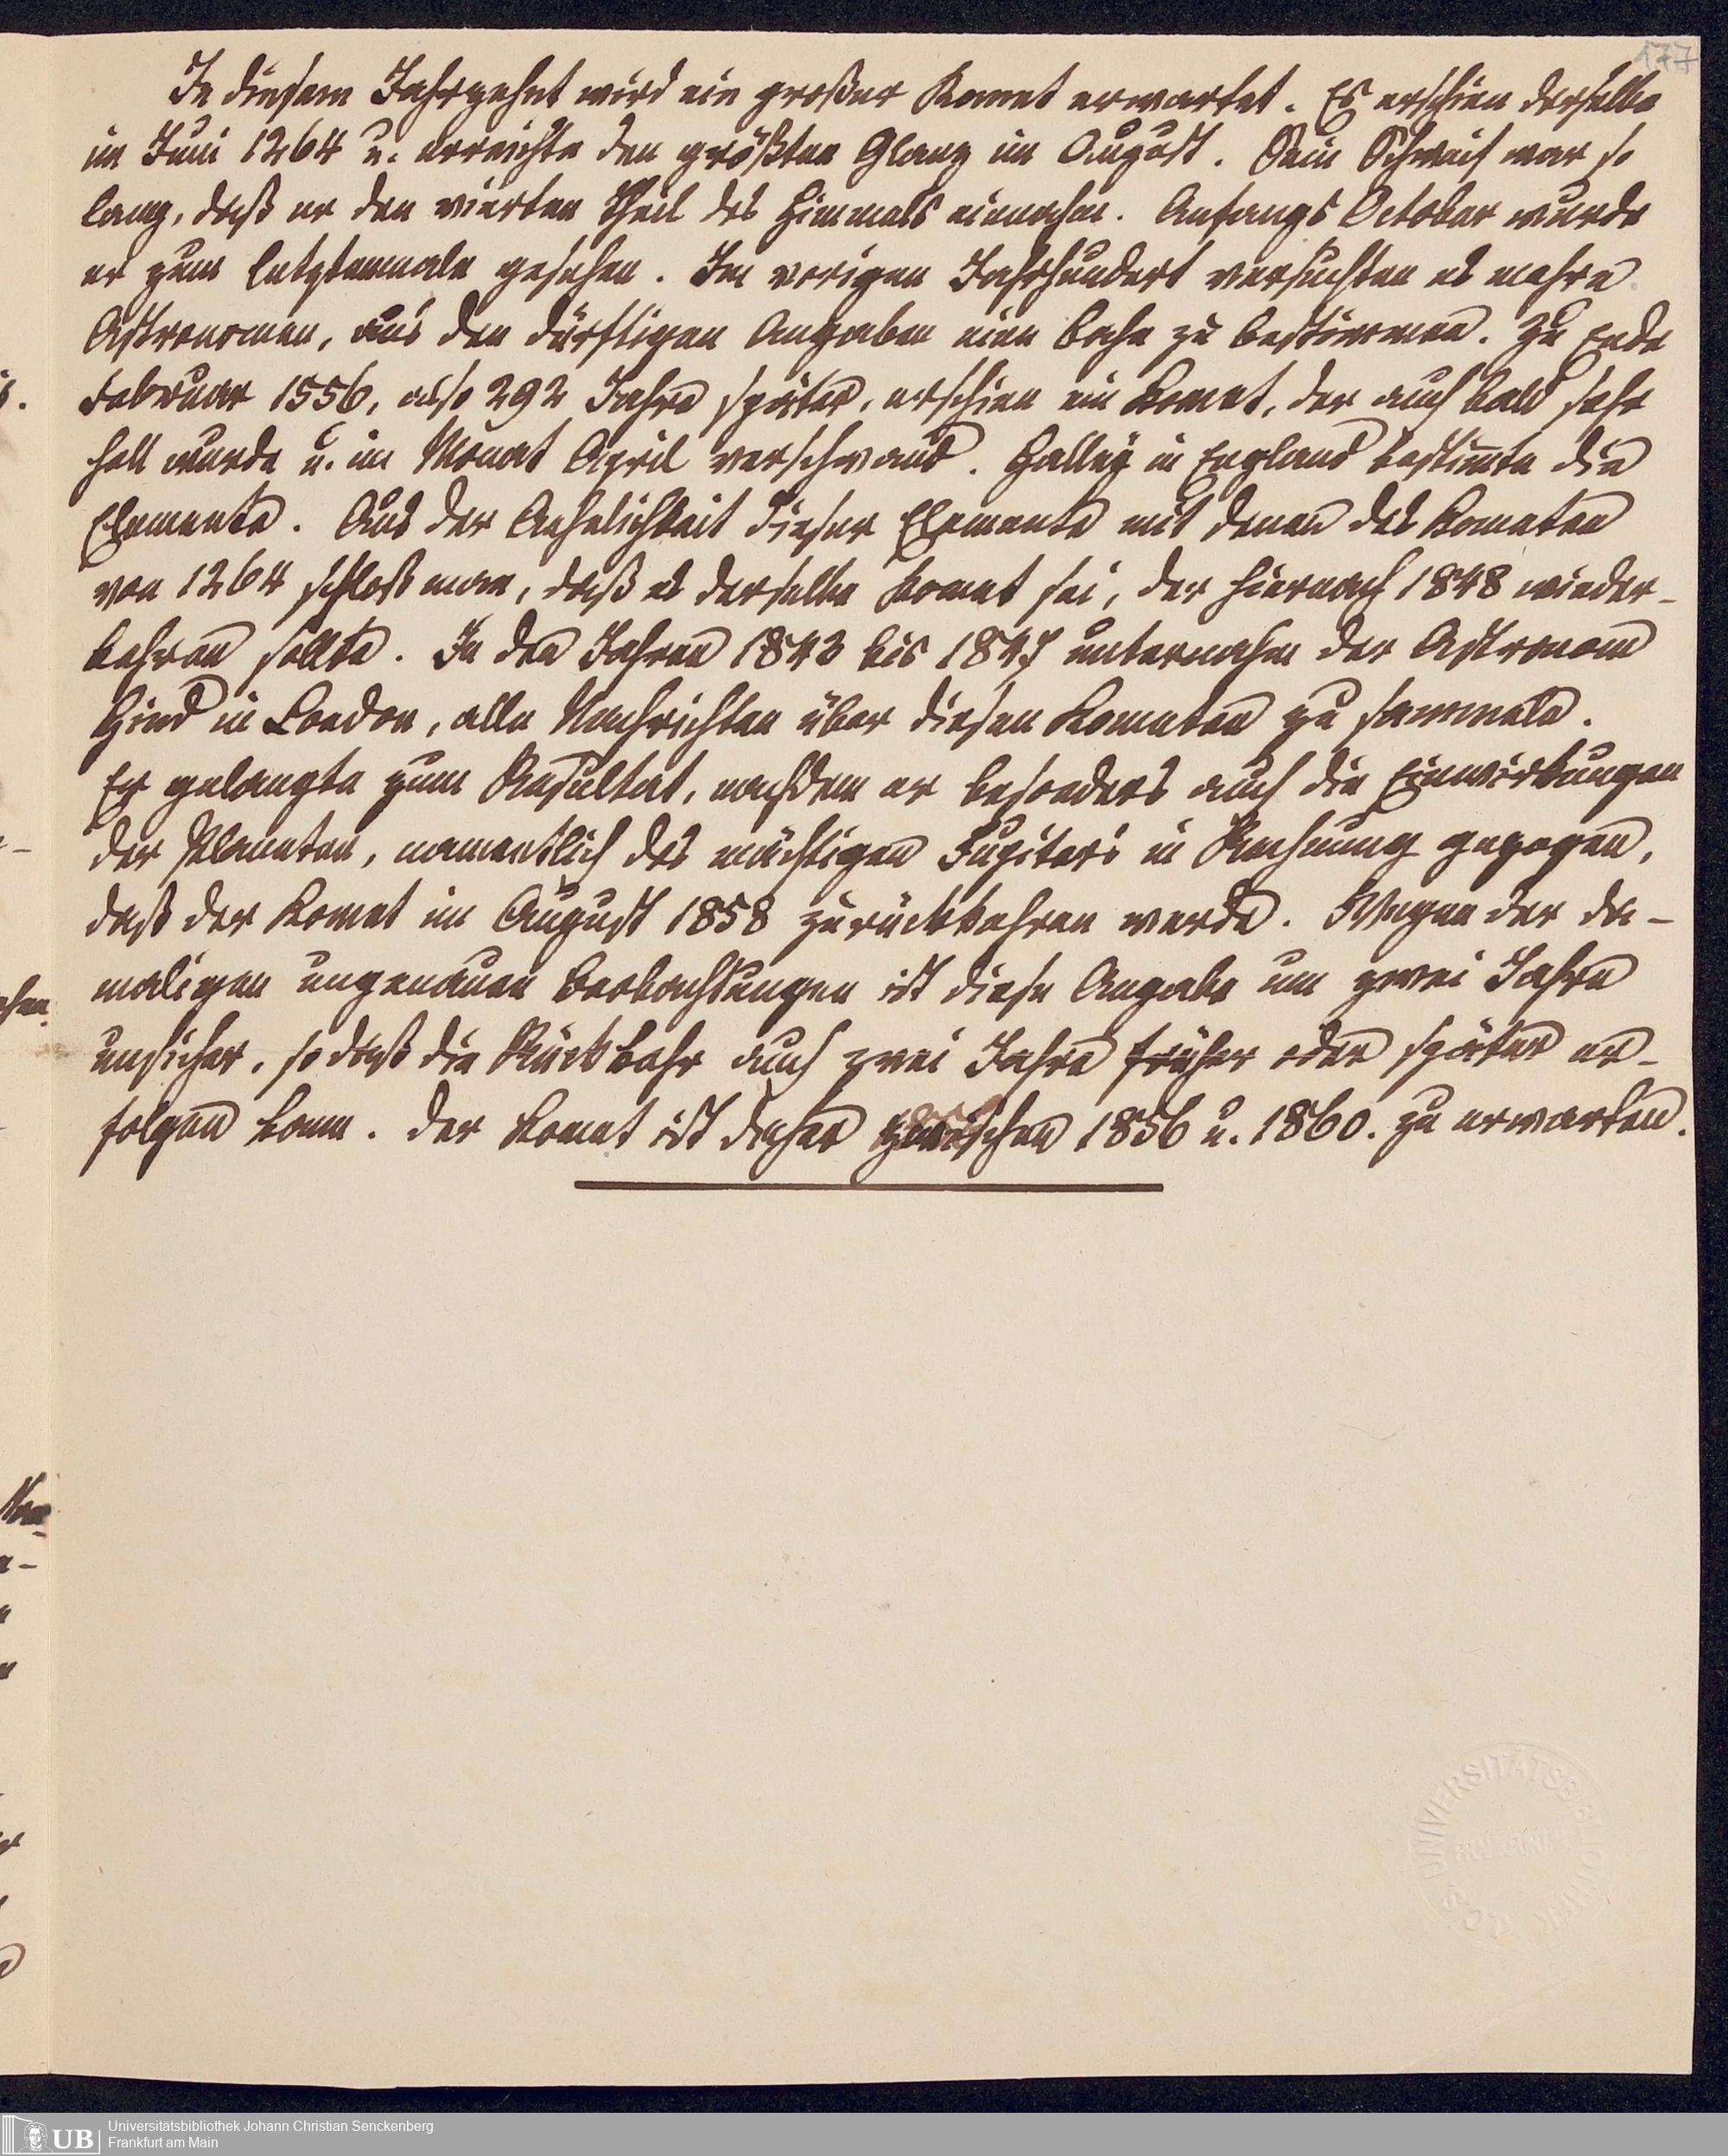 177
In diesem Jahrzehnt wird ein großer Komet erwartet. Es erschien derselbe
im Juni 1264 u. erreichte den größten Glanz im August. Sein Schweif war so
lang, daß er den vierten Theil des Himmels einnahm. Anfangs October wurde
er zum letztenmale gesehen. Im vorigen Jahrhundert versuchten es mehre
Astronomen, aus den dürftigen Angaben eine Bahn zu bestimmen. Zu Ende
Februar 1556, also 292 Jahre später, erschien ein Komet, der auch bald sehr
hell wurde u. im Monat April verschwand. Halley in England bestimmte die
Elemente. Aus der Aehnlichkeit dieser Elemente mit denen des Kometen
von 1264 schloß man, daß es derselbe Komet sei, der hiernach 1848 wieder-
kehren sollte. In den Jahren 1843 bis 1847 unternahm der Astronom
Hind in London, alle Nachrichten über diesen Kometen zu sammeln.
Er gelangte zum Resultat, nachdem er besonders auch die Einwirkungen
der Planeten, namentlich des mächtigen Jupiters in Rechnung gezogen,
daß der Komet im August 1858 zurückkehren werde. Wegen der da-
maligen ungenauen Beobachtungen ist diese Angabe um zwei Jahre
unsicher, so daß die Rückkehr auch zwei Jahre früher oder später er-
folgen kann. Der Komet ist daher zwischen 1856 u. 1860. zu erwarten.
UB
Universitätsbibliothek Johann Christian Senckenberg
Frankfurt am Main